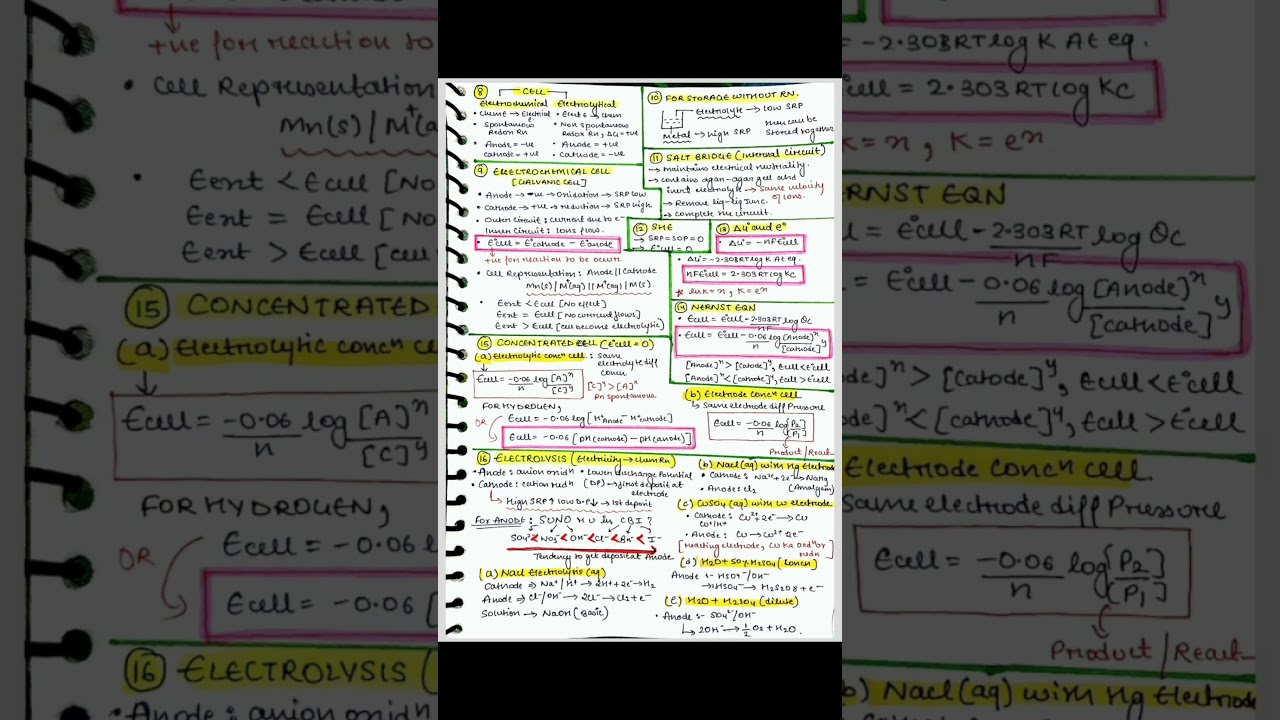 ⑧ CELL
Electrochemical Electrolytical
• Chem E → Electrical • Elect E → Chem
• Spontaneous Redox Rn • Non Spontaneous Redox Rn, ΔG = +ve
• Anode = -ve • Anode = +ve
• Cathode = +ve • Cathode = -ve
⑨ ELECTROCHEMICAL CELL
[GALVANIC CELL]
• Anode → -ve → Oxidation → SRP low
• Cathode → +ve → reduction → SRP high
• Outer Circuit : current due to e⁻
Inner Circuit : Ions flow.
• E°cell = E°cathode - E°anode
+ve for reaction to be occur.
• Cell Representation : Anode || Cathode
Mn(s) | M⁺(aq) || M⁺(aq) | M(s).
• Eext < Ecell [No effect]
Eext = Ecell [No current flows]
Eext > Ecell [cell become electrolytic]
⑩ FOR STORAGE WITHOUT RN.
Electrolyte → low SRP
Metal → high SRP
then can be
stored together
⑪ SALT BRIDGE (Internal Circuit)
→ maintains electrical neutrality.
→ contains agar-agar gel and
inert electrolyte → same velocity
of ions.
→ Remove liq-liq Junc.
→ complete the circuit.
⑫ SHE
→ SRP = SOP = 0
⑬ ΔG° and E°
• ΔG° = -nFE°cell
• ΔG° = -2.303RT log K At eq.
nFE°cell = 2.303RT log Kc
* ln K = x , K = eˣ
⑭ NERNST EQN
• Ecell = E°cell - 2.303RT/nF log Qc
• Ecell = E°cell - 0.06/n log [Anode]ˣ/[cathode]ʸ
[Anode]ˣ > [Catode]ʸ, Ecell < E°cell
[Anode]ˣ < [Catode]ʸ, Ecell > E°cell
⑮ CONCENTRATED CELL (E°cell = 0)
(a) Electrolytic concⁿ cell : Same
electrolyte diff
concn
Ecell = -0.06/n log [A]ˣ/[C]ʸ
[C]ʸ > [A]ˣ
Rn spontaneous
FOR HYDROGEN,
Ecell = -0.06 log [H⁺Anode - H⁺cathode]
OR
Ecell = -0.06 [pH(cathode) - pH(anode)]
(b) Electrode Concⁿ cell
↳ Same electrode diff Pressure
Ecell = -0.06/n log [P₂]/[P₁]
Product / React-
⑯ ELECTROLYSIS (Electricity → chem Rn)
• Anode : anion oxidⁿ • Lower discharge Potential
• Cathode : cation redⁿ (DP) → first deposit at
electrode
↳ High SRP↑ low D.P↓ → 1st deposit
For ANODE : SUNO HU In CBI ?
SO₄²⁻ < NO₃⁻ < OH⁻ < Cl⁻ < Br⁻ < I⁻
Tendency to get deposit at Anode
(a) Nacl Electrolysis (aq)
Cathode ⇒ Na⁺/H⁺ → 2H⁺ + 2e⁻ → H₂
Anode ⇒ Cl⁻/OH⁻ → 2Cl⁻ → Cl₂ + e⁻
Solution → NaOH (Basic)
(b) Nacl (aq) with Hg Electrode
• Cathode : Na⁺ + 2e⁻ → NaHg
• Anode : Cl₂ (Amalgam)
(c) CuSO₄ (aq) with Cu electrode
• Cathode : Cu²⁺ 2e⁻ → Cu
Cu⁺/H⁺
• Anode : Cu → Cu²⁺ 2e⁻
[reacting electrode, Cu ka Oxdⁿ or
redn
(d) H₂O + 50% H₂SO₄ (Concn)
Anode :- HSO₄⁻/OH⁻
→ HSO₄⁻ → H₂S₂O₈ + e⁻
(e) H₂O + H₂SO₄ (dilute)
• Anode :- SO₄²⁻/OH⁻
↳ 2OH⁻ → ½ O₂ + H₂O.